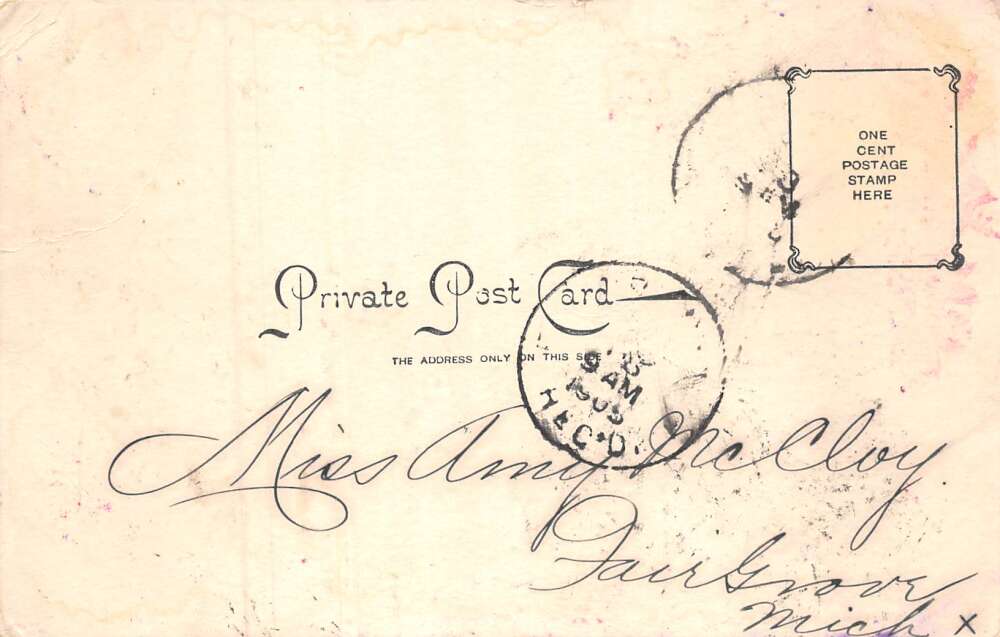 ONE
CENT
POSTAGE
STAMP
HERE
Private Post Card
THE ADDRESS ONLY ON THIS SIDE
9 AM
1905
REC'D.
Miss Amy McCloy
Fair Grove
Mich
X